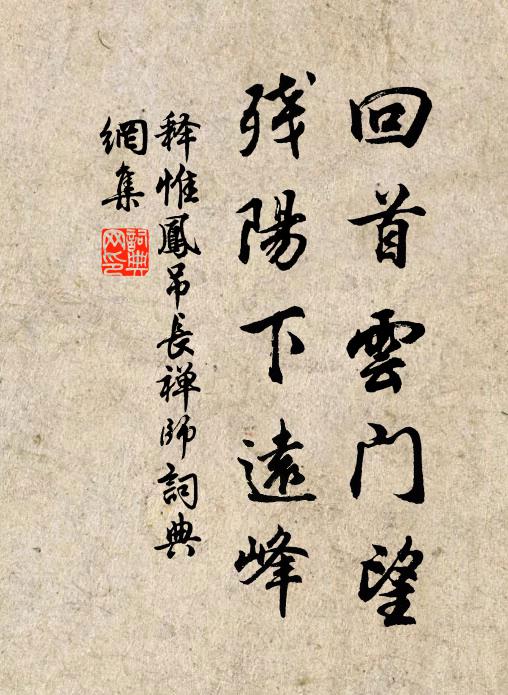 回首雲门望
残陽下遠峰
释惟鳳吊长禅师詞典
網集
詞典
网印